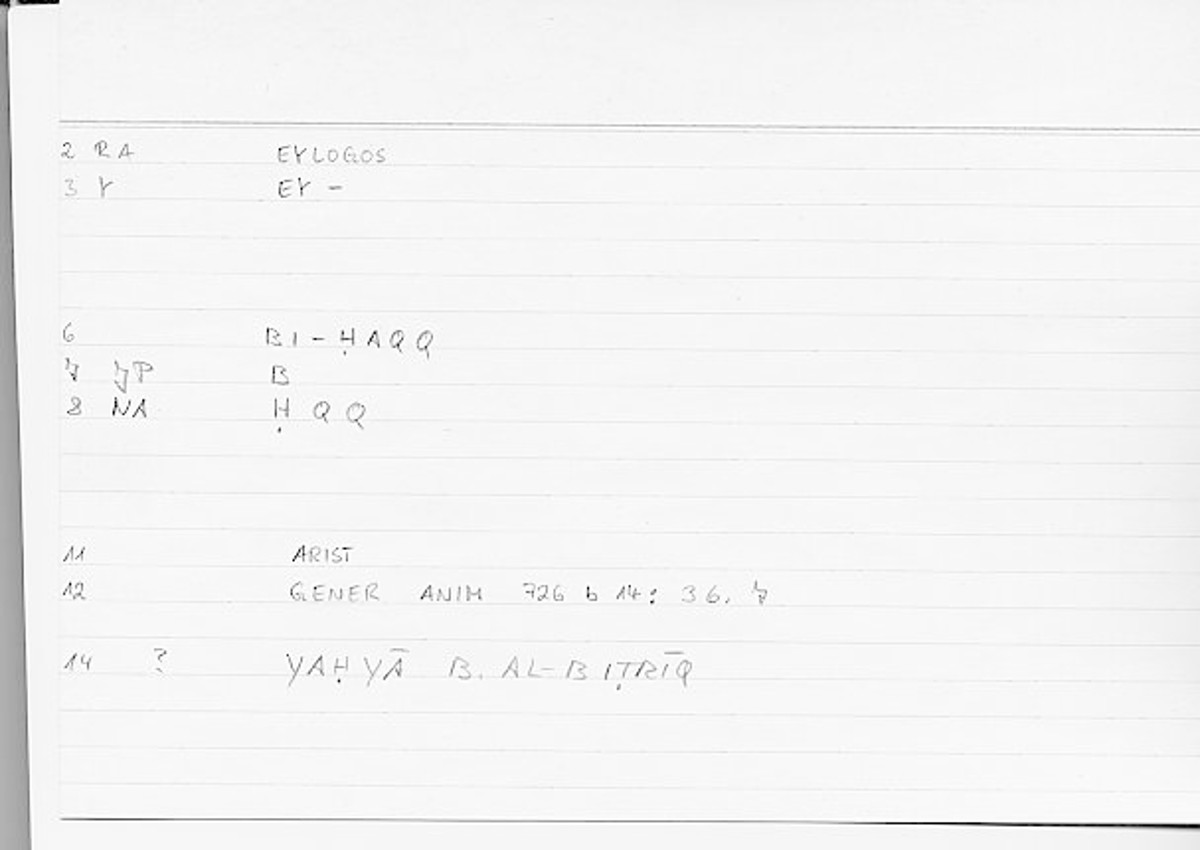 2 RA EYLOGOS
3 Y EY -
6 BI - ḤAQQ
7 JP B
8 NA Ḥ Q Q
11 ARIST
12 GENER ANIM 726 b 14: 36, 7
14 ? YAḤYĀ B. AL-BIṬRĪQ